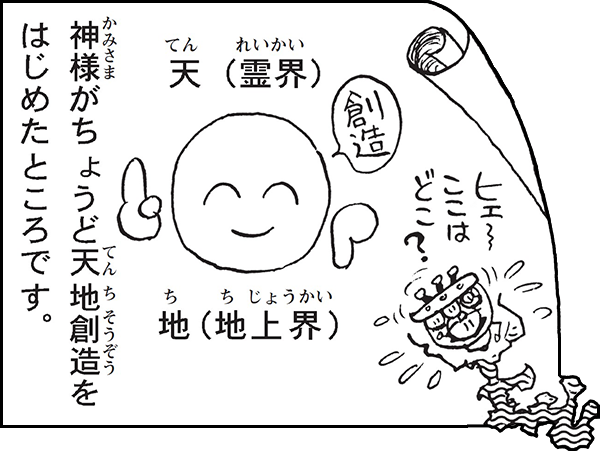 神様がちょうど天地創造を
はじめたところです。
天(霊界)
創造
地(地上界)
ヒェ〜
ここは
どこ?